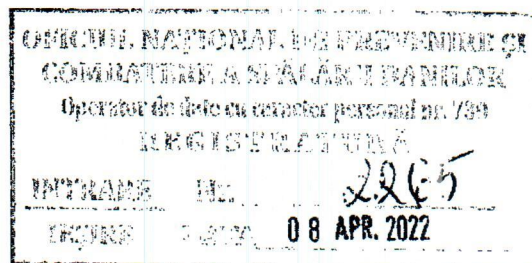 OFICIUL NAŢIONAL DE PREVENIRE ŞI
COMBATERE A SPĂLĂRII BANILOR
Operator de date cu caracter personal nr. 739
REGISTRATURĂ
INTRARE Nr.
IEŞIRE 08 APR. 2022